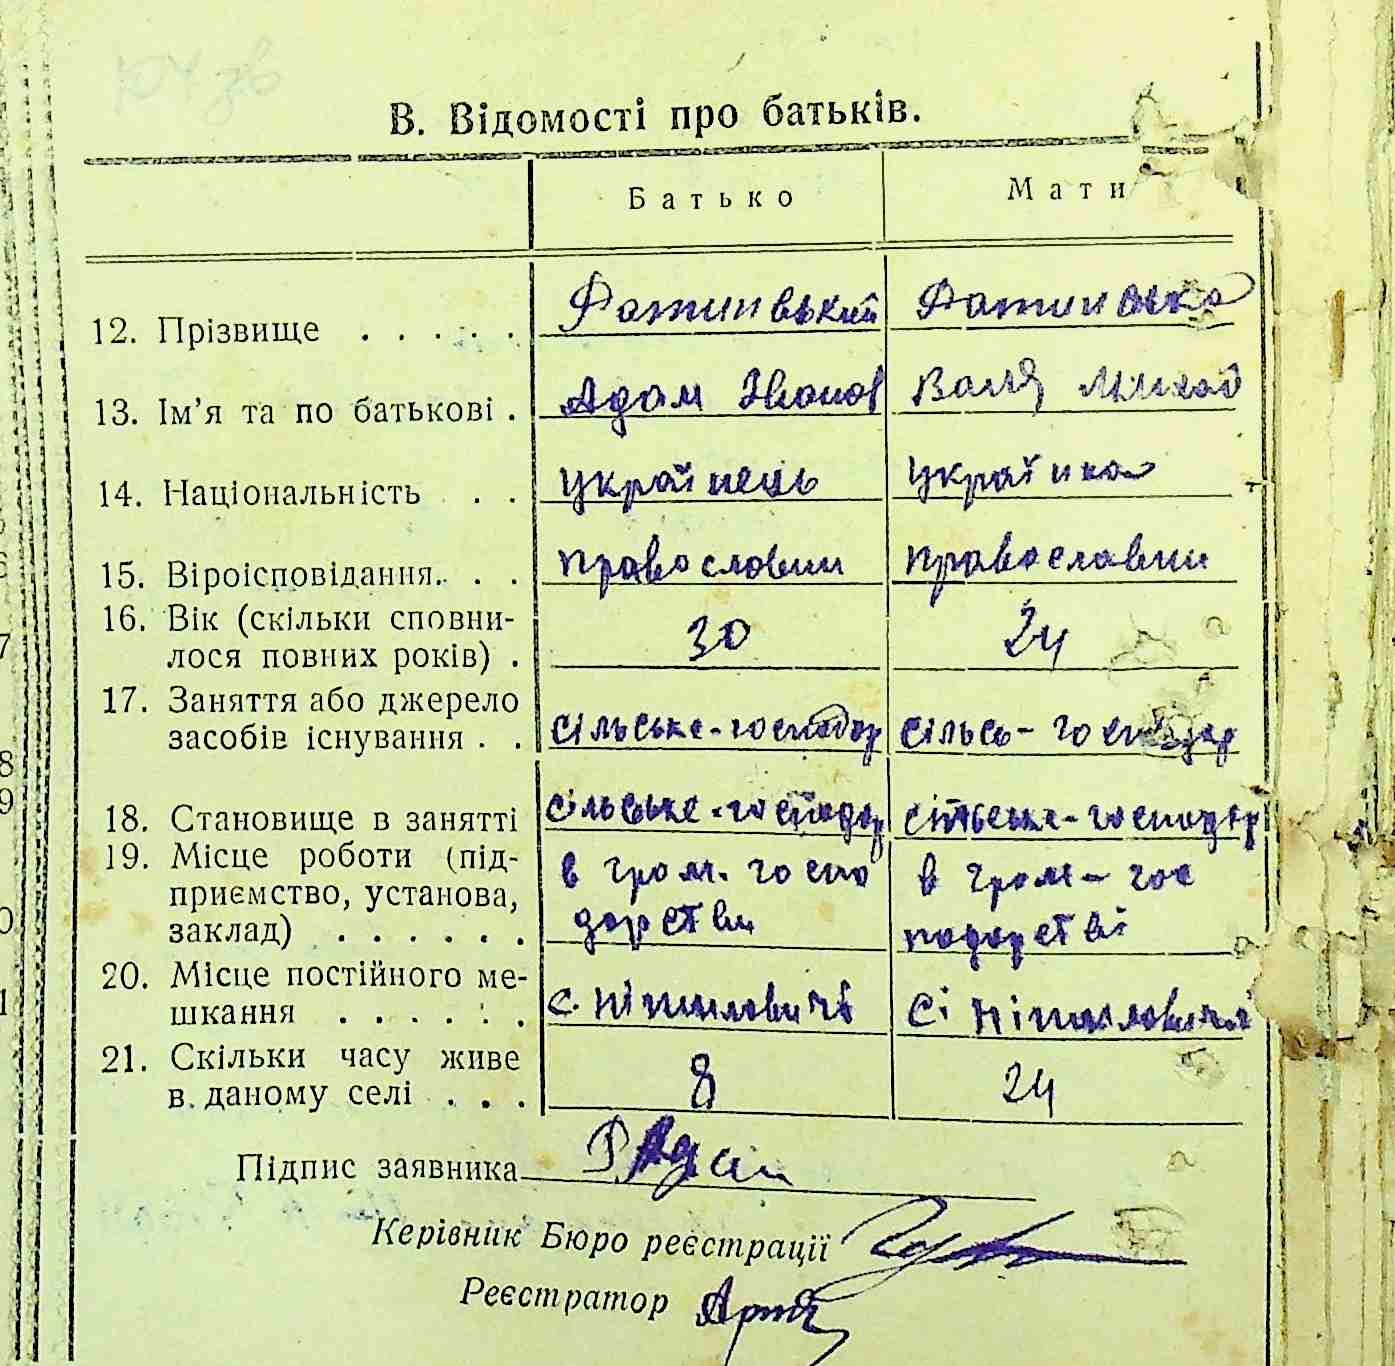 В. Відомості про батьків.
Батько Мати
12. Прізвище . . . . .
13. Ім’я та по батькові . Адам Іванов Валя Михай
14. Національність . . українець украінка
15. Віроісповідання. . . православни православни
16. Вік (скільки сповни-
лося повних років) . 30 24
17. Заняття або джерело
засобів існування . . сільське-господар сільсь-господар
18. Становище в занятті сільське-господар сільське-господар
19. Місце роботи (під- в гром. госпо в гром-гос
приємство, установа,
заклад) . . . . . . дарстви подарстві
20. Місце постійного ме-
шкання . . . . . . с.
21. Скільки часу живе
в даному селі . . . 8 24
Підпис заявника
Керівник Бюро реєстрації
Реєстратор